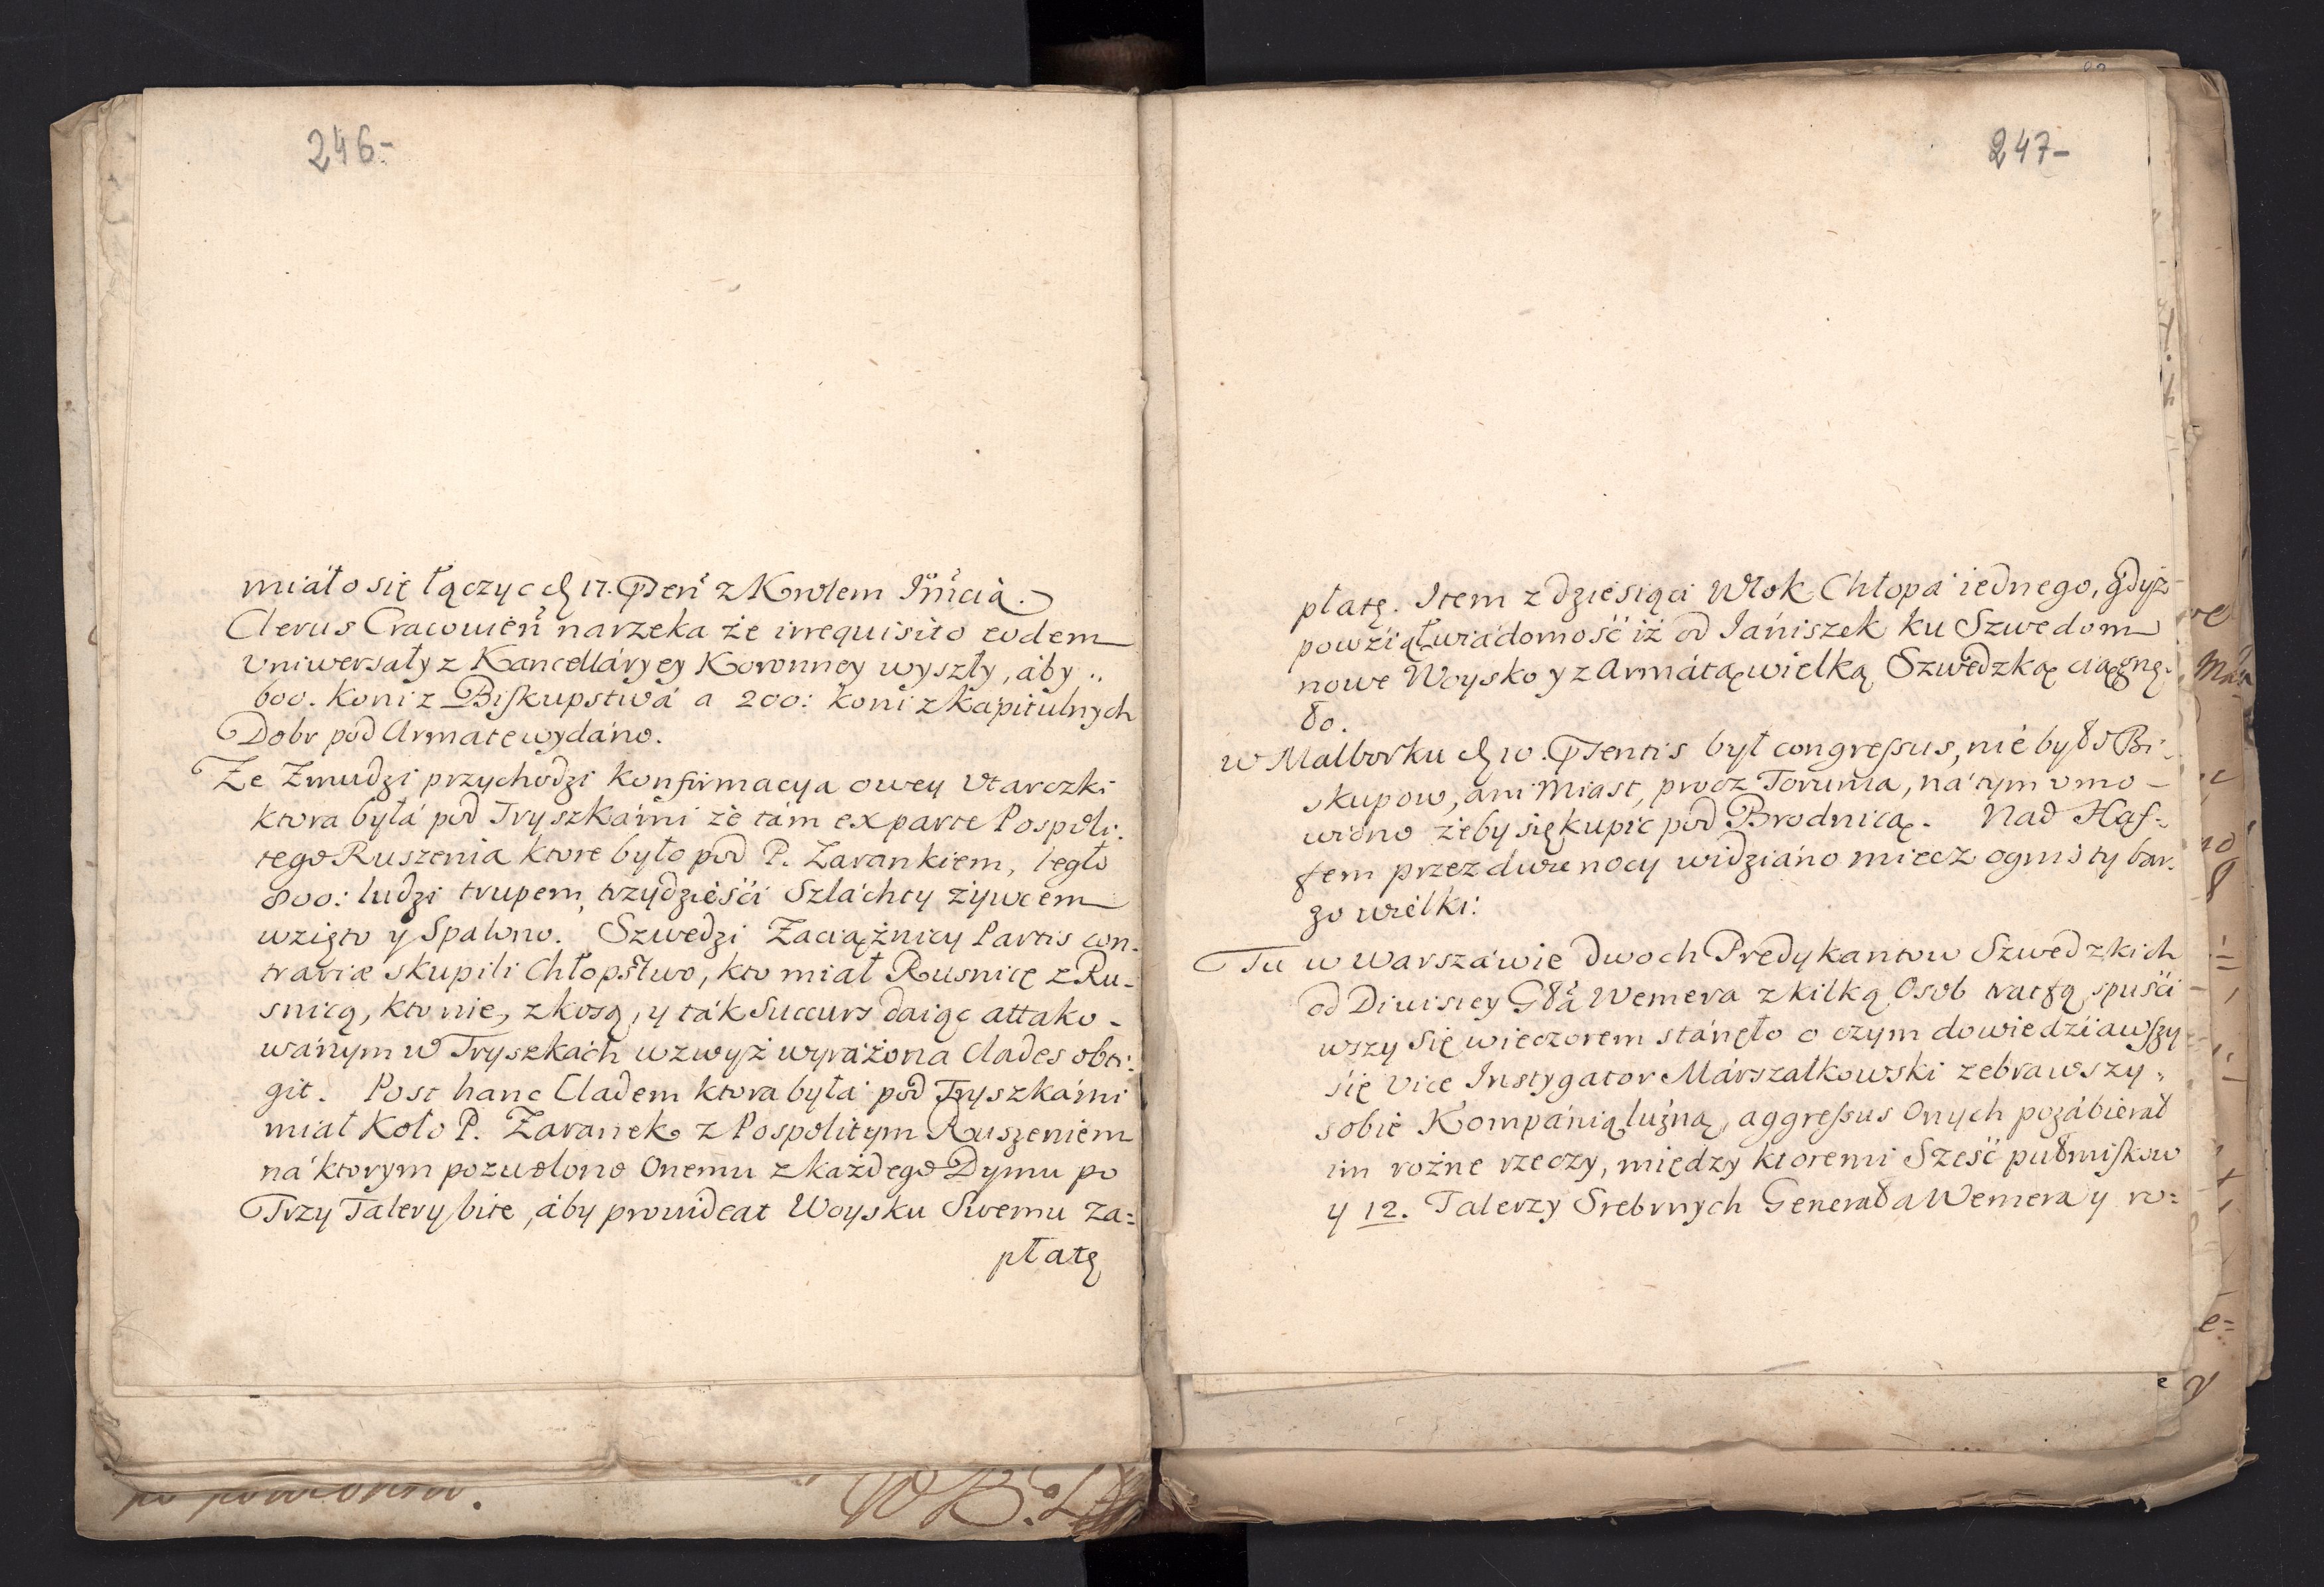 246-
miáło się łączyc d 17. Psen z Krolem Jmcią.
Clerus Cracovien narzeka że irrequisito eodem
Vniwersały z Kancelláryey Koronney wyszły, áby
600. koni z Biskupstwá a 200: koni z kápitulnych
Dobr pod Armate wydáno.
Ze Zmudzi przychodzi Konfirmacya owey Vtarczki
ktora byłá pod Tryszkámi że tám ex parte Pospoli-
tego Ruszenia ktore było pod P. Zarankiem, legło
800: ludzi trupem, trzydzieści Szláchty żywcem
wzięto y Spalono. Szwedzi Zaciążnicy Partis con-
trariæ skupili Chłopstwo, kto miał Rusnicę z Ru-
snicą, kto nie, z kosą, y ták Succurs daiąc attako-
wánym w Tryszkách wzwyż wyrażona Clades obti-
git. Post hanc Cladem ktora byłá pod Tryszkámi
miał Koło P. Zaranek z Pospolitym Ruszeniem
ná ktorym pozwolono Onemu z każdego Dymu po
Trzy Talery bite, áby provideat Woysku Swemu Za=
płatę
247-
płatę. Item z dziesiąci Włok Chłopá iednego, gdyż
powziął wiádomość iż od Jániszek ku Szwedom
nowe Woysko y z Armátą wielką Szwedzką ciągnę-
ło.
w Malborku d 10. Psentis był congressus, nie było Bi-
skupow, ani Miast, procz Torunia, ná tym vmo-
wiono żeby się kupić pod Brodnicą. Nad Háf-
fem przez dwie nocy widziáno miecz ognisty bar-
zo wielki:
Tu w Warszáwie dwoch Predykantow Szwedzkich
od Diwisiey Gła Wemera z kilką Osob tratfą spuści
wszy się wieczorem stánęło o czym dowiedziawszy
się Vice Instygator Márszałkowski zebrawszy
sobie Kompánią luźną, aggressus Onych pozábierał
im rożne rzeczy, między ktoremi Sześć pułmiskow
y 12. Talerzy Srebrnych Generała Wemera y ro=